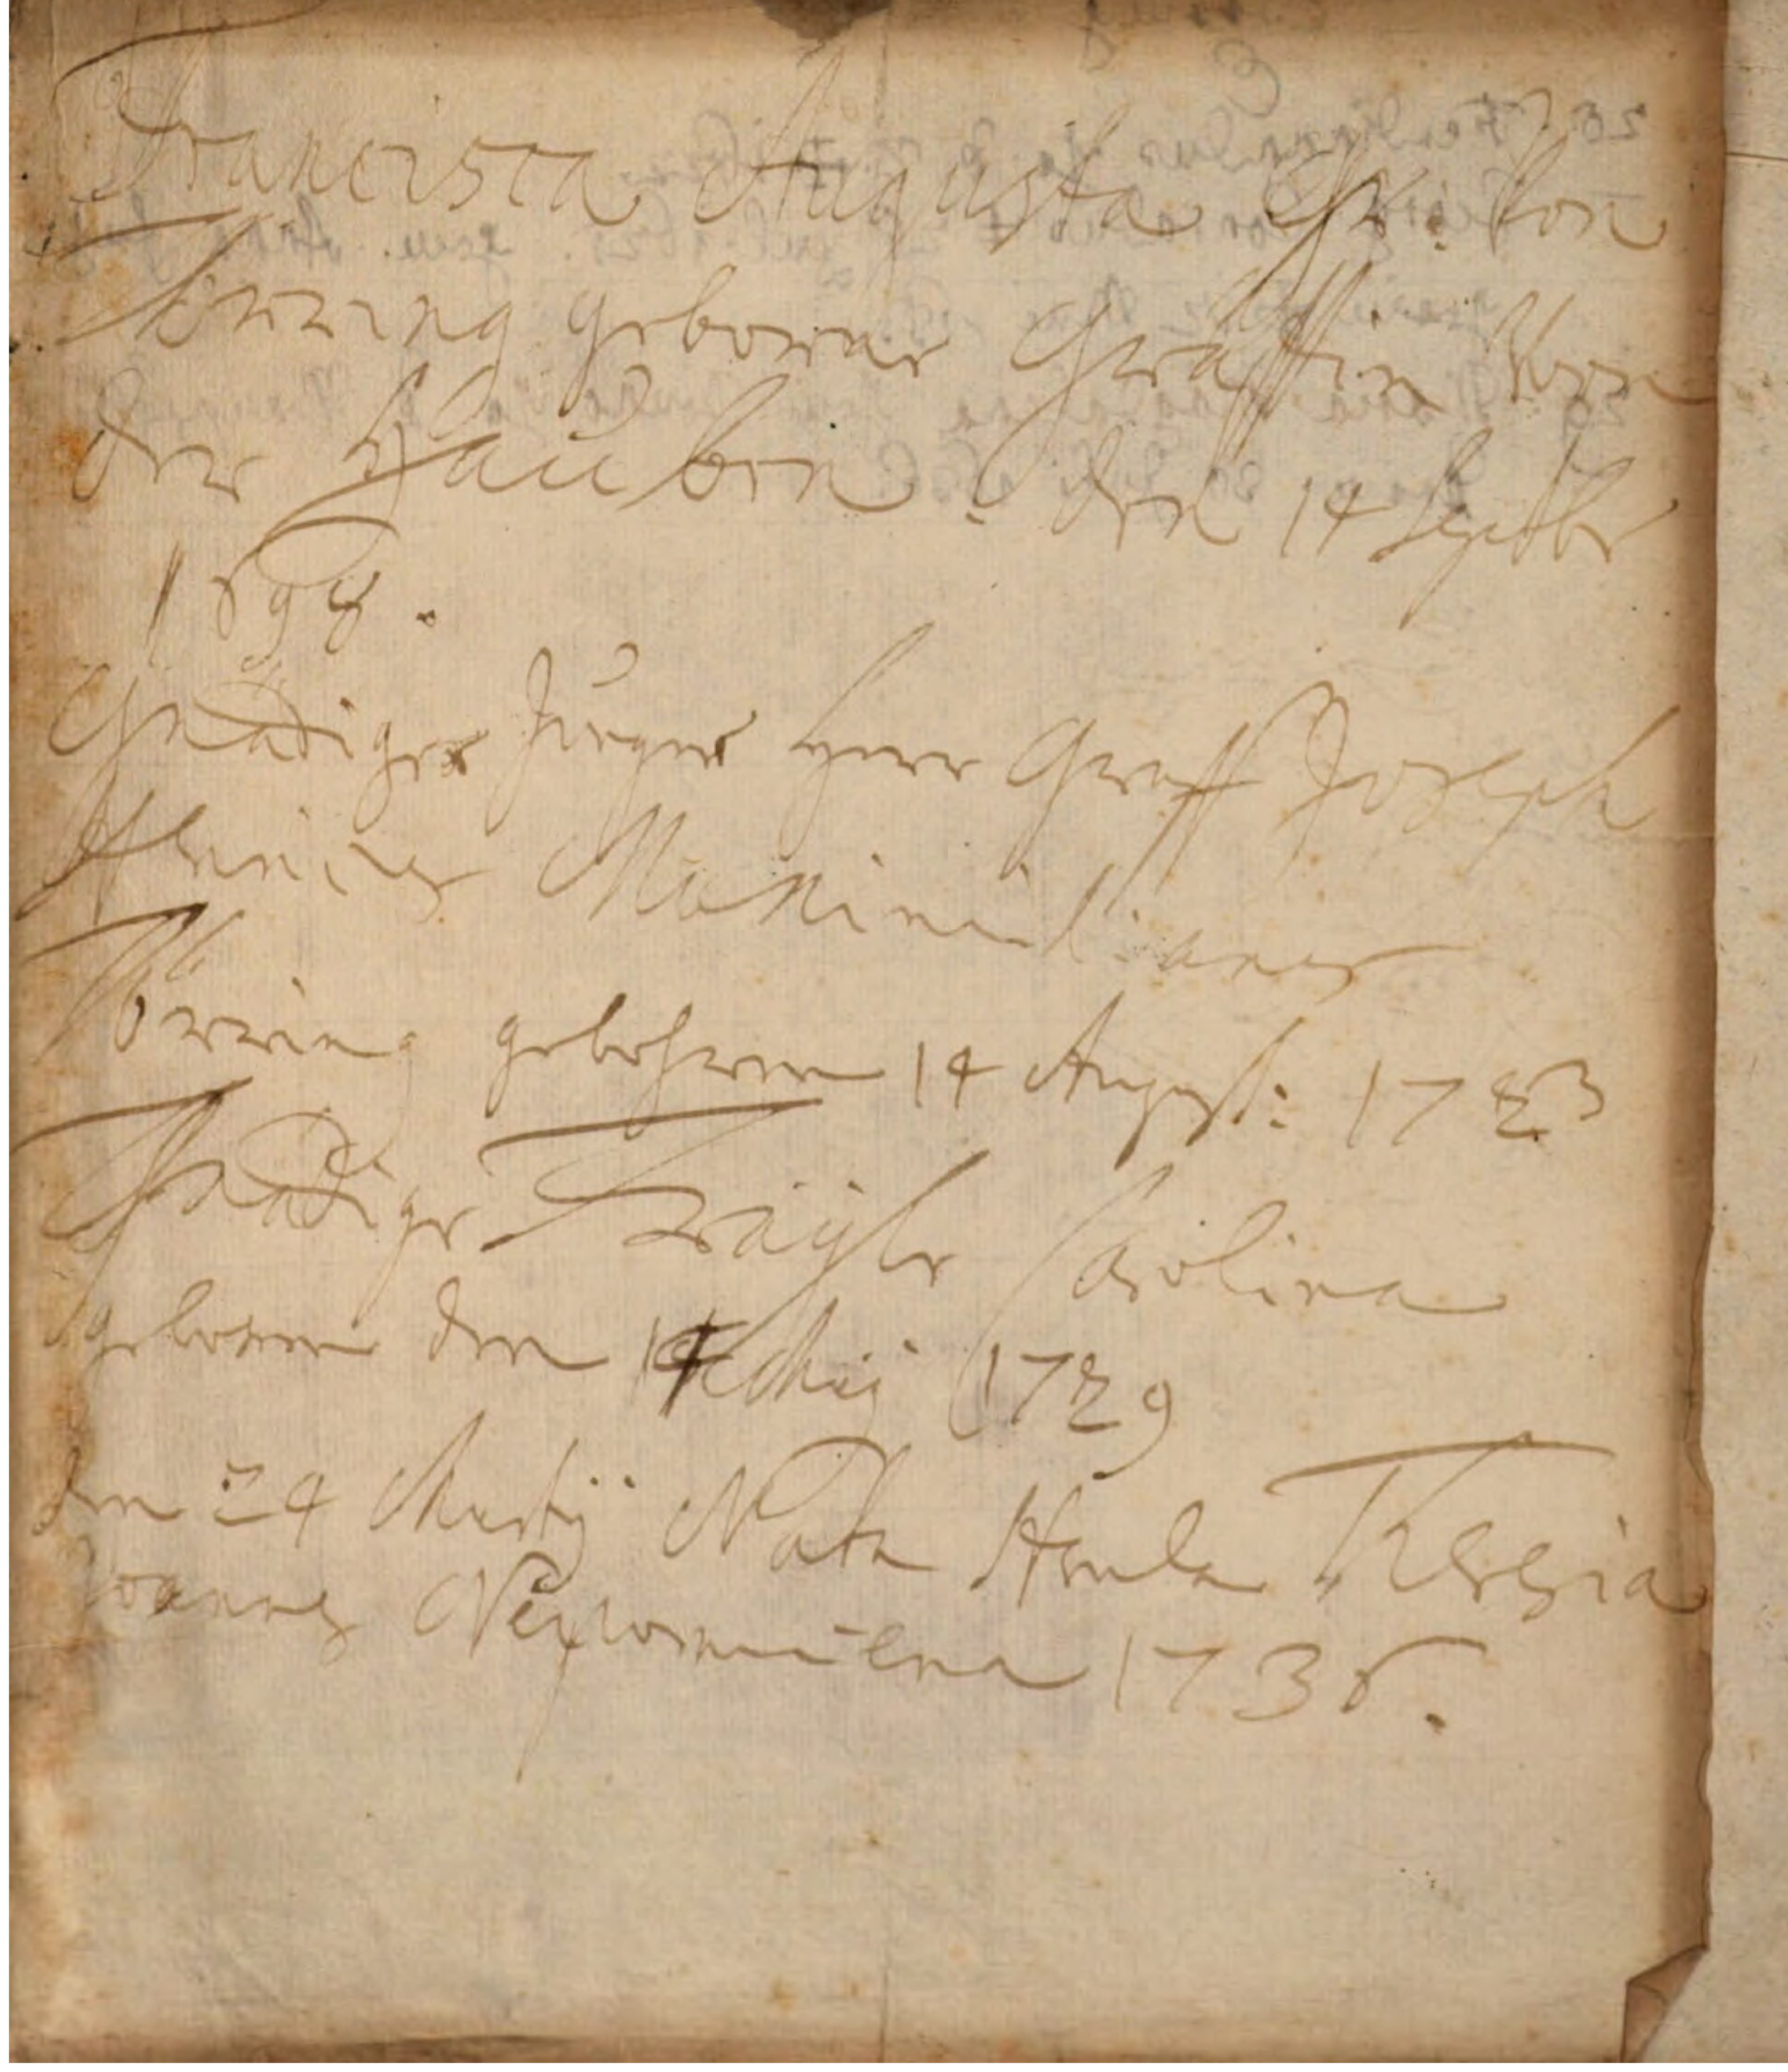 Francisca Augusta Gr: Von
Törring geborne Gräffin Von
der Hauben: den 14 Septbr
1698.
Gnädiger Junger Herr Graff Joseph
Maximilianus
Törring gebohren 14 August: 1723
Gnädige Fräyle Carolina
geboren den 14 Maij 1729
den 24 Martij Nata Theresia
Joannes Nepomucena 1736.